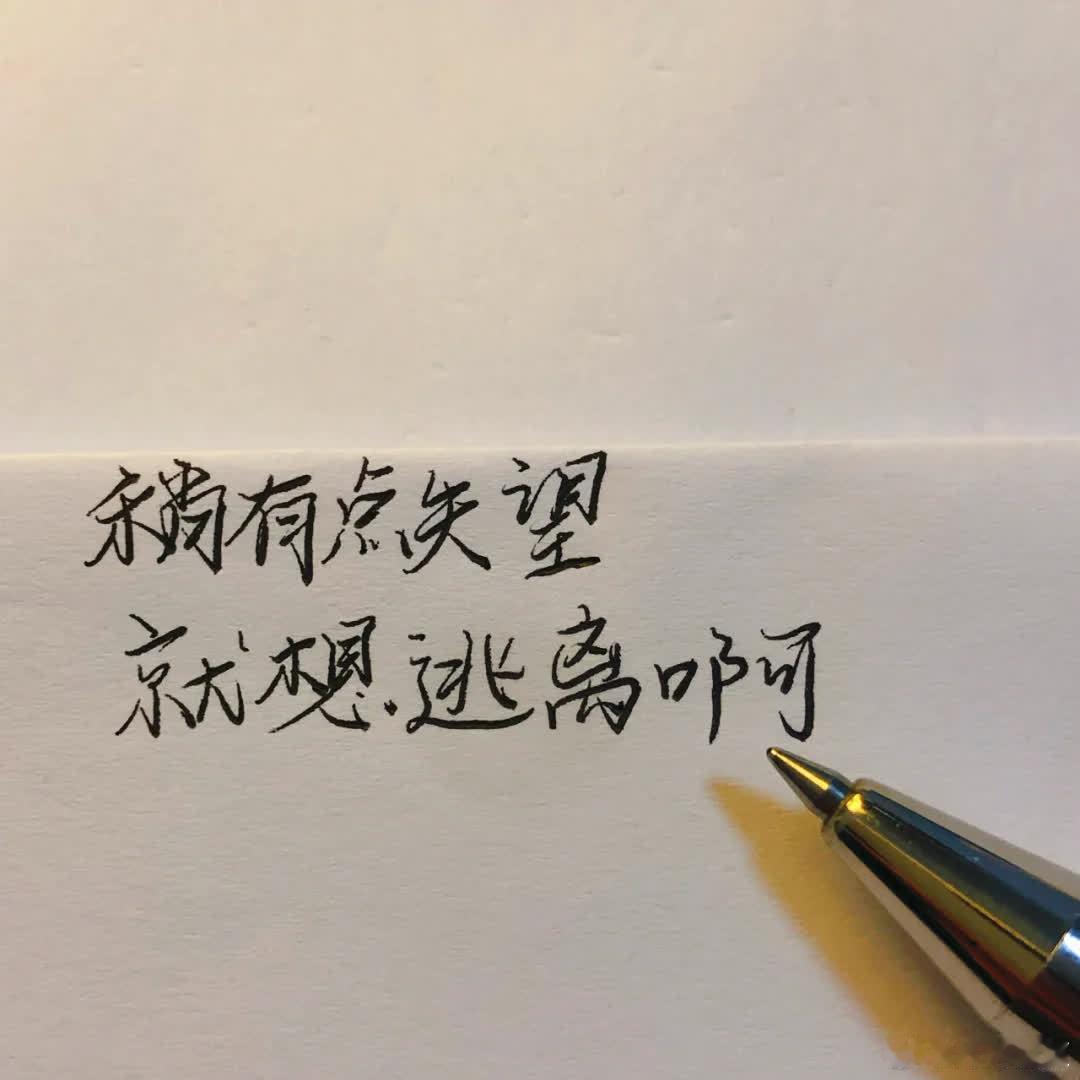 稍有点失望
就想逃离啊